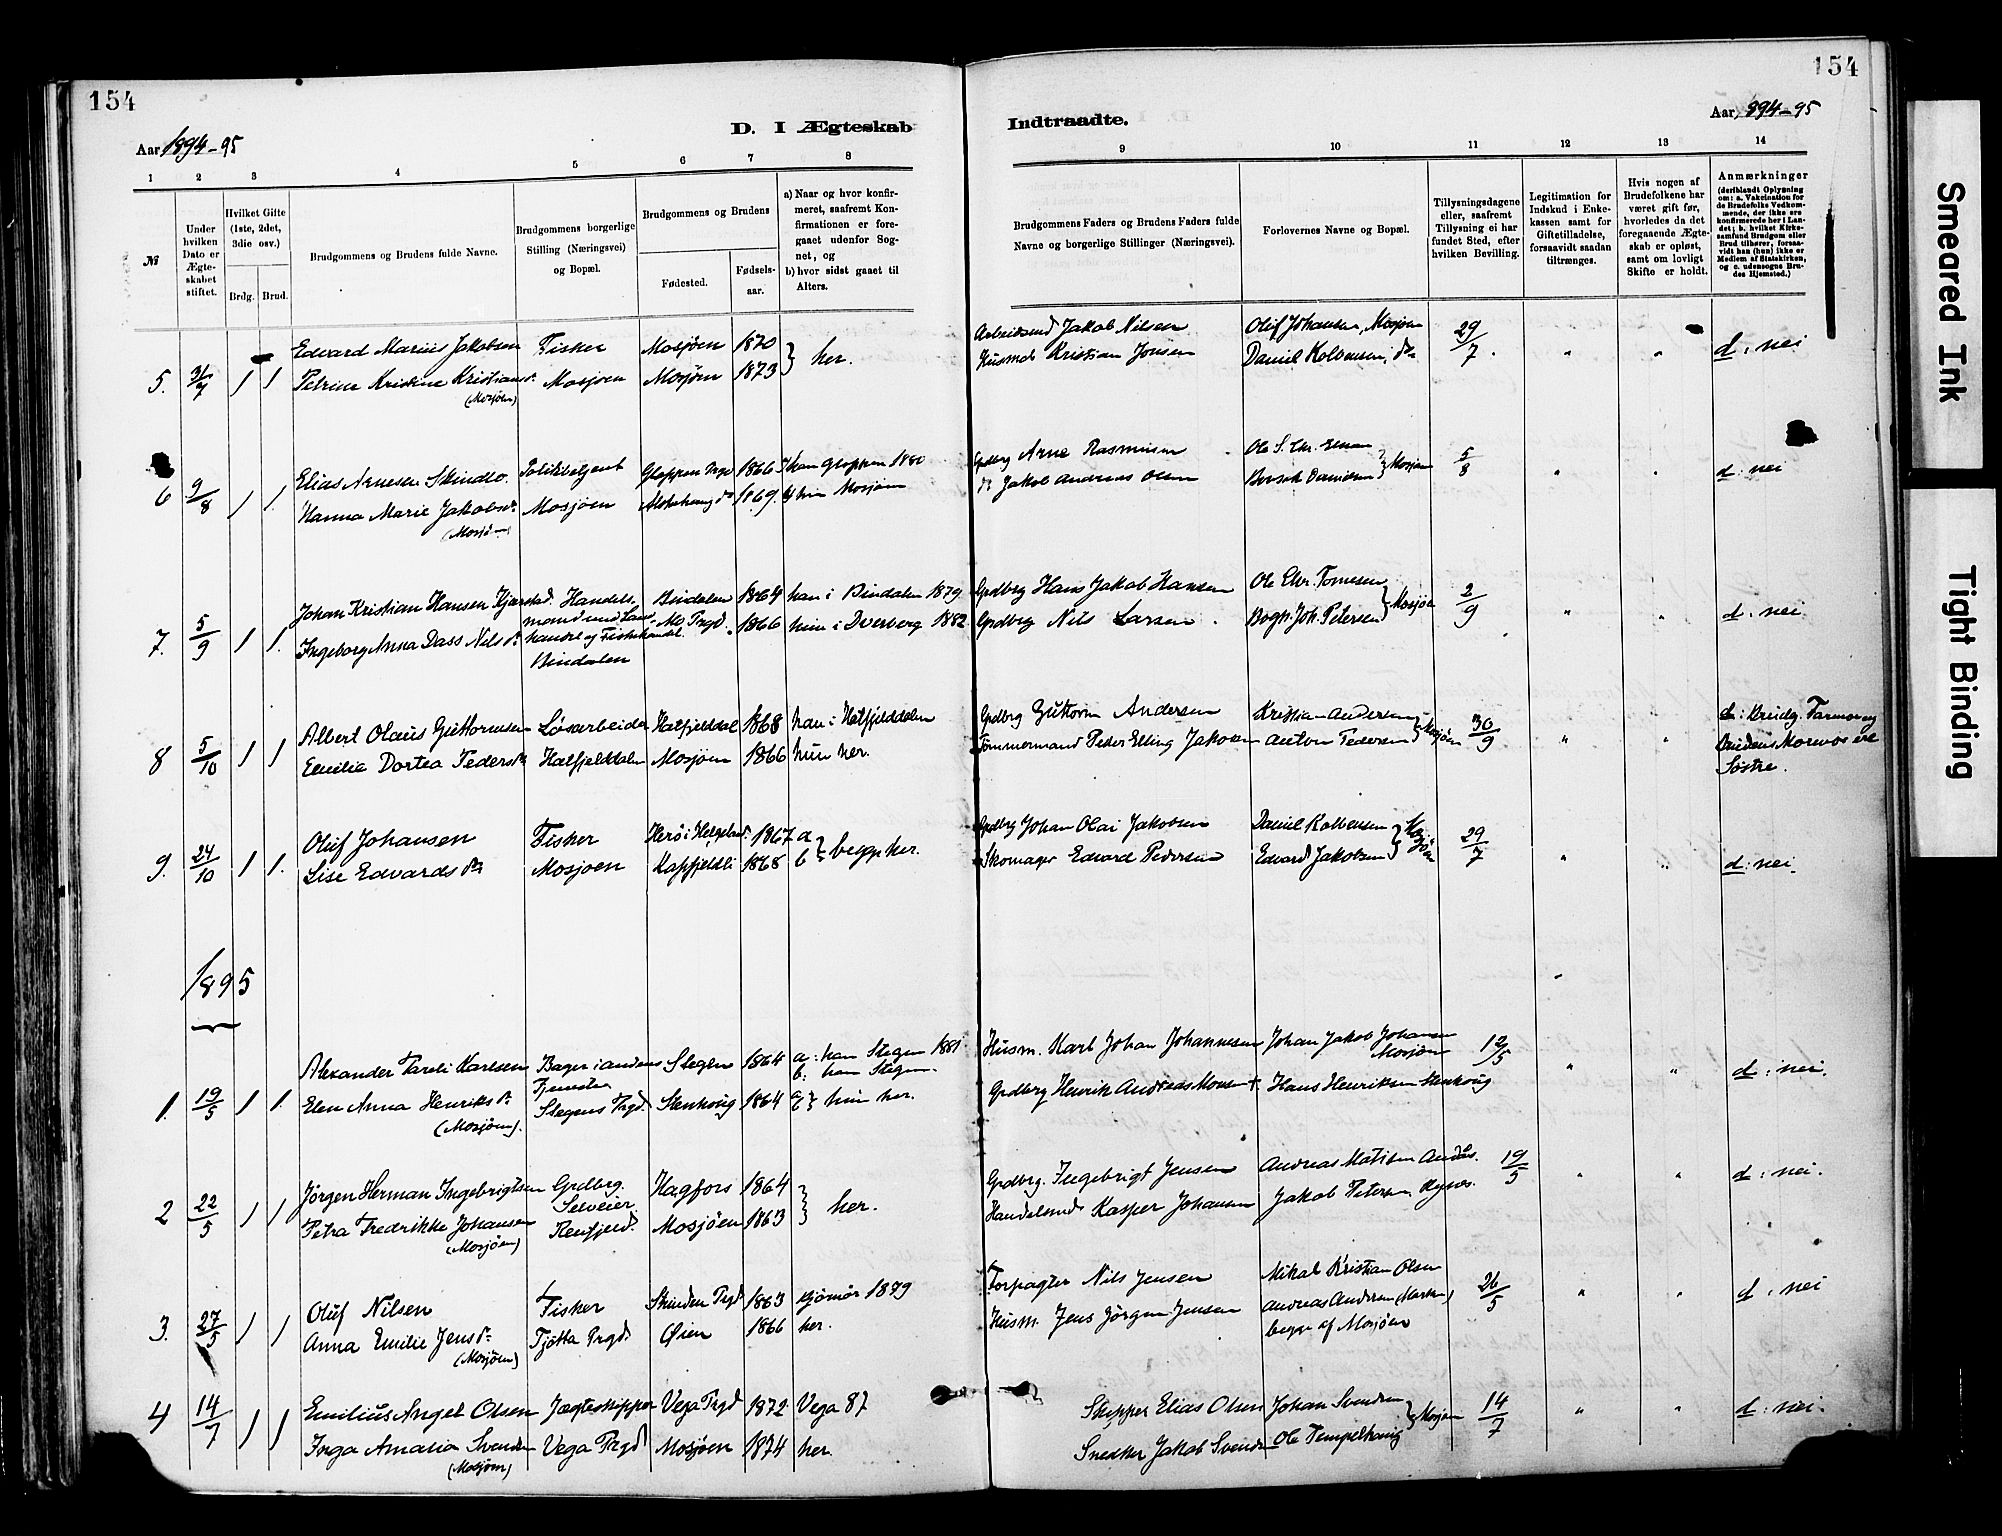 154
154
Aar 1894-95
D. I Ægteskab
Indtraadte.
Aar 1894-95
1 2 3 4 5 6 7 8 9 10 11 12 13 14
№
Under hvilken Dato er Ægteskabet stiftet.
Hvilket Gifte (1ste, 2det, 3die osv.)
Brdg. Brud.
Brudgommens og Brudens fulde Navne.
Brudgommens borgerlige Stilling (Næringsvei) og Bopæl.
Brudgommens og Brudens
Fødested.
Fødselsaar.
a) Naar og hvor konfirmeret, saafremt Konfirmationen er foregaaet udenfor Sognet, og
b) hvor sidst gaaet til Alters.
Brudgommens Faders og Brudens Faders fulde Navne og borgerlige Stillinger (Næringsvei).
Forlovernes Navne og Bopæl.
Tillysningsdagene eller, saafremt Tillysning ei har fundet Sted, efter hvilken Bevilling.
Legitimation for Indskud i Enkekassen samt for Giftetilladelse, forsaavidt saadan tiltrænges.
Hvis nogen af Brudefolkene har været gift før, hvorledes da det foregaaende Ægteskab er opløst, samt om lovligt Skifte er holdt.
Anmærkninger
(deriblandt Oplysning om: a. Vakcination for de Brudefolks Vedkommende, der ikke ere konfirmerede her i Landet; b. hvilket Kirkesamfund Brudgom eller Brud tilhører, forsaavidt han (hun) ikke er Medlem af Statskirken, og c. udensogns Brudes Hjemsted.)
5. 31/7 1 1. Edvard Marius Jakobsen Fisker Mosjøen 1870 } her. Arbeidsmd Jakob Nilsen Oluf Johansen, Mosjøen 29/7. " " d: nei
Petrine Kristine Kristiansdr. Mosjøen Mosjøen 1873 Husmd Kristian Jonsen Daniel Kolbensen, do
(Mosjøen)
6 9/8 1 1. Elias Arnesen Skindlo. Politibetjent Gloppen Prgd 1866 han Gloppen 1880 Grdbrg Arne Rasmusen Ole S. Chr. } Mosjøen 5/8 " " d: nei
Hanna Marie Jakobsdr. Mosjøen Alstahaug do 1869. hun Mosjøen do Jakob Andreas Olsen
(Mosjøen)
7. 5/9 1 1. Johan Kristian Hansen Kjærstad. Handels- Bindalen 1864 han i Bindalen 1879. Grdbrg Hans Jakob Hansen Ole Chr. Tomesen } Mosjøen 2/9 " " d: nei
mand med Land-
Ingeborg Anna Dass Nilsdr. handel og Fiskehandel. Mo Prgd. 1866 hun i Dverberg 1882. Grdbrg Nils Larsen. Bogh. Joh. Petersen
Bindalen
8 5/10 1 1 Albert Olaus Guttormsen Løsarbeider Hatfjelddal 1868 han i Hatfjelddalen Grdbrg Guttorm Andersen Kristian Andersen } Mosjøen 30/9 " " d: Brudg. Farmor og
Emilie Dortea Pedersdr. Hatfjelddalen Mosjøen 1866 hun her. Tømmermand Peder Elling Jakobsen Anton Pedersen Brudens Mormor ere
Søstre.
9. 24/10 1 1. Oluf Johansen Fisker Herø i Helgeland. 1867 a } begge her. Grdbrg Johan Olai Jakobsen Daniel Kolbensen } Mosjøen 29/7 " " d: nei.
Lise Edvardsdr. Mosjøen Kapfjeldli 1868 b Skomager Edvard Pedersen Edvard Jakobsen
1895
1. 19/5 1 1. Alexander Pareli Karlsen Bager i andens Stegen 1864 a: han Stegen 1881 Husm. Karl Johan Johannesen Johan Jakob Johansen 12/5 " " d: nei.
Tjeneste b: han Stegen. Mosjøen
Elen Anna Henriksdr. Stegens Prgd. Stenhaug 1864 a b } hun her. Grdbrg Henrik Andreas Monsen + Hans Henriksen Stenhaug
(Mosjøen).
2 22/5 1 1 Jörgen Herman Ingebrigtsen Grdbrg. Hagfors 1864 } her. Grdbrg. Ingebrigt Jensen Andreas Matisen Andås. 19/5 " " d: nei.
Selveier
Petra Fredrikke Johansen Renfjeld. Mosjøen 1863 Handelsmd Kasper Johansen Jakob Petersen
(Mosjøen)
3. 27/5 1 1 Oluf Nilsen Fisker Prgd 1863 1879 Forpagter Nils Jensen Mikal Kristian Olsen 26/5 " " d. nei
Anna Emilie Jensdr. Tjøtta Prgd. Øien 1866 her. Husm. Jens Jörgen Jensen Andreas Andersen
(Mosjøen) begge af Mosjøen
4 14/7 1 1 Emilius Angel Olsen Jægteskipper Vega Prgd 1872 Vega 87 Skipper Elias Olsen Johan Svendsen } Mosjøen 14/7 " " d: nei.
Inga Amalia Svendsen Vega Prgd Mosjøen 1874 her. Snedker Jakob Svendsen Ole Tempelhaug
(Mosjøen)
Smeared Ink
Tight Binding